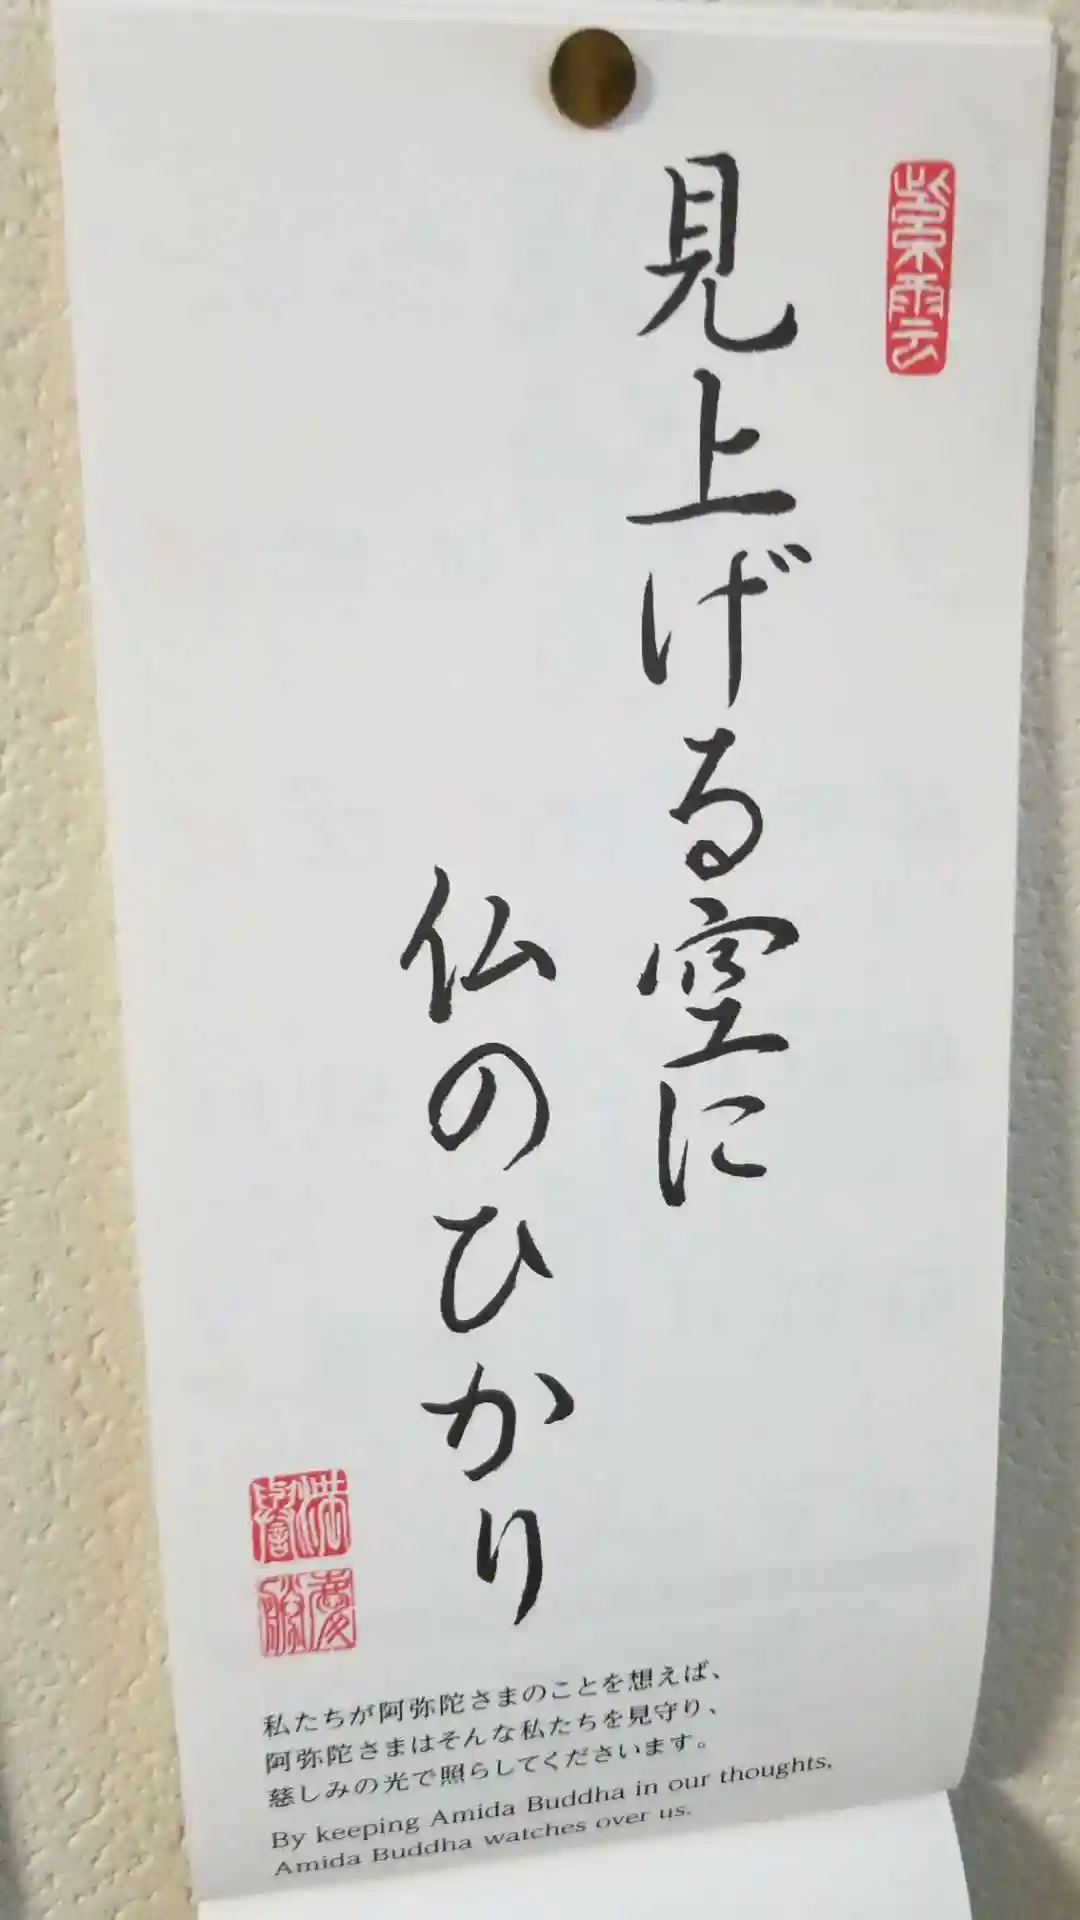 紫雲
見上げる空に
仏のひかり
私たちが阿弥陀さまのことを想えば、
阿弥陀さまはそんな私たちを見守り、
慈しみの光で照らしてくださいます。
By keeping Amida Buddha in our thoughts,
Amida Buddha watches over us.